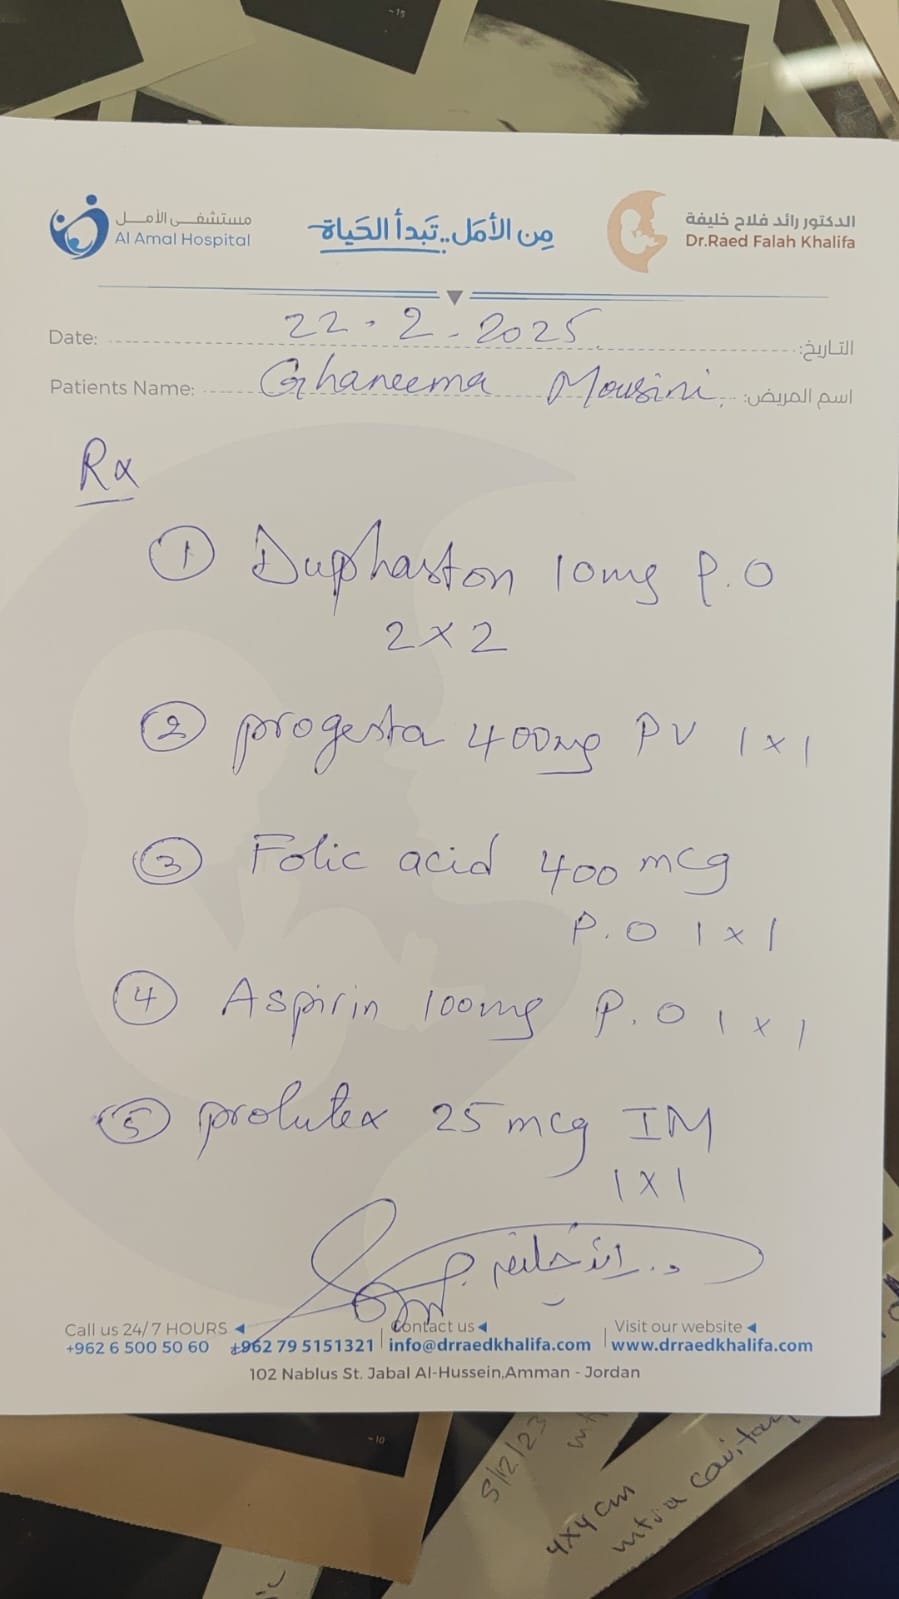 -15
مستشفى الأمل
Al Amal Hospital
مِن الأمَل.. تَبدأ الحَياة
الدكتور رائد فلاح خليفة
Dr.Raed Falah Khalifa
Date: 22-2-2025 التاريخ:
Patients Name: Ghaneema Mousini اسم المريض:
Rx
① Duphaston 10mg P.O
2 x 2
② progesta 400mg PV 1 x 1
③ Folic acid 400 mcg
P.O 1 x 1
④ Aspirin 100mg P.O 1 x 1
⑤ prolutex 25 mcg IM
1 x 1
د. رائد خليفة
Call us 24/7 HOURS
+962 6 500 50 60 +962 79 5151321
Contact us
info@drraedkhalifa.com
Visit our website
www.drraedkhalifa.com
102 Nablus St. Jabal Al-Hussein,Amman - Jordan
-10
5/12/23
4x4cm